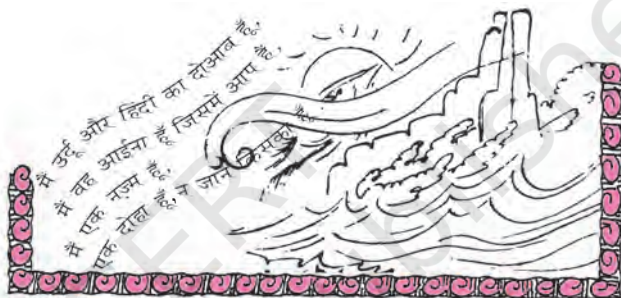 मैं उर्दू और हिंदी का दोआब हूँ,
मैं वह आईना हूँ जिसमें आप हैं,
मैं एक नज़्म हूँ,
एक दोहा हूँ, न जाने किसका हूँ